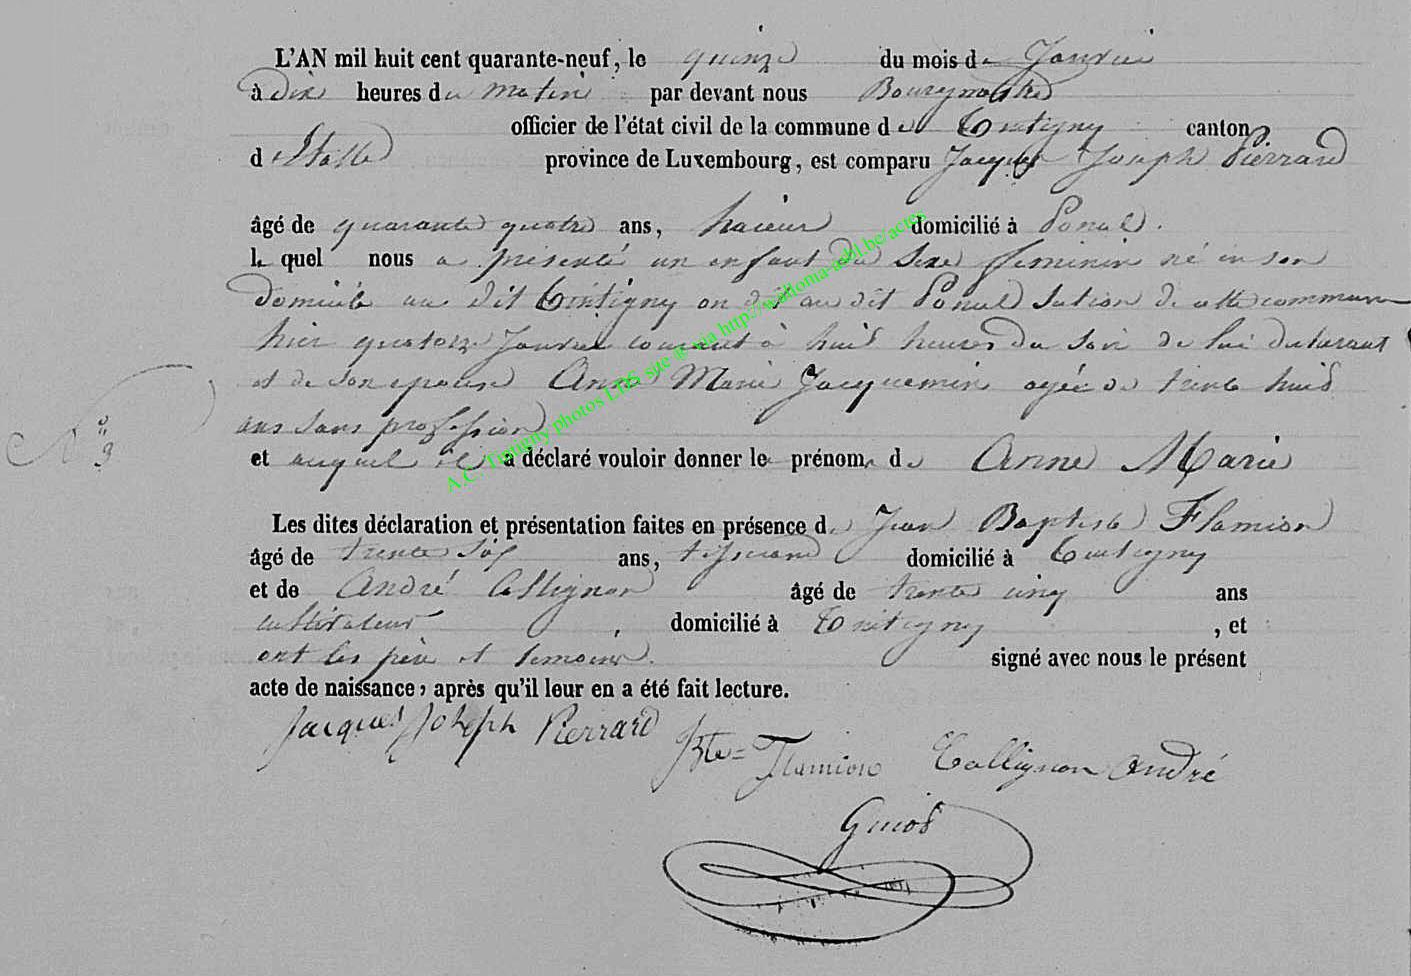 L'AN mil huit cent quarante-neuf, le quinze du mois de Janvier
à dix heures du matin par devant nous Bourgmestre
officier de l'état civil de la commune de Tintigny canton
d'Etalle province de Luxembourg, est comparu Jacques Joseph Pierrard
âgé de quarante quatre ans, domicilié à Ponsel.
le quel nous a présenté un enfant du sexe feminin né en son
domicile au dit Tintigny on dit au dit Ponsel section de cette commune
hier quatorze Janvier courant à huit heures du soir de lui déclarant
et de son epouse Anne Marie Jacquemin agée de trente huit
ans sans profession
N° 3
et auquel il a déclaré vouloir donner le prénom de Anne Marie
Les dites déclaration et présentation faites en présence de Jean Baptiste Flamion
âgé de trente ans, tisserand domicilié à Tintigny
et de André Collignon âgé de trente cinq ans
cultivateur, domicilié à Tintigny, et
ont les père et temoins signé avec nous le présent
acte de naissance, après qu'il leur en a été fait lecture.
Jacques Joseph Pierrard
Bte Flamion Collignon André
Guiot
A.C. Tintigny photos LDS site @ via http://wallonia-asbl.be/actes